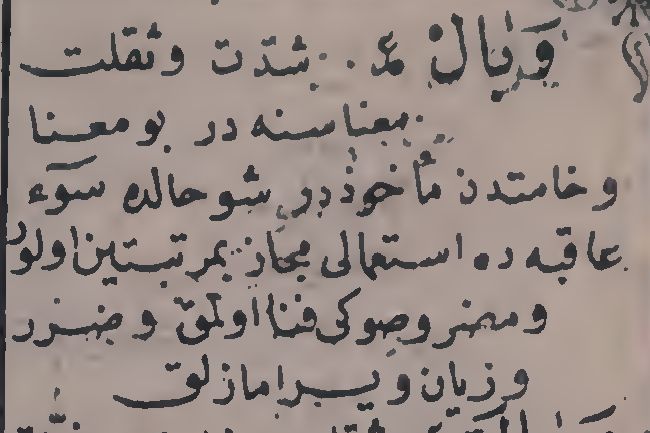 وبال ع. شدّت وثقلت
معناسنه در بو معنا
وخامتدن مأخوذدر شو حالده سوء
عاقبه ده استعمالى مجاز بمرتبتين اولور
ومضر وصوكى فنا اولمق وضرر
وزيان ويرامازلق